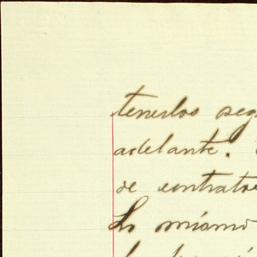 tenerlos seg
adelante.
de contrato
Lo mismo